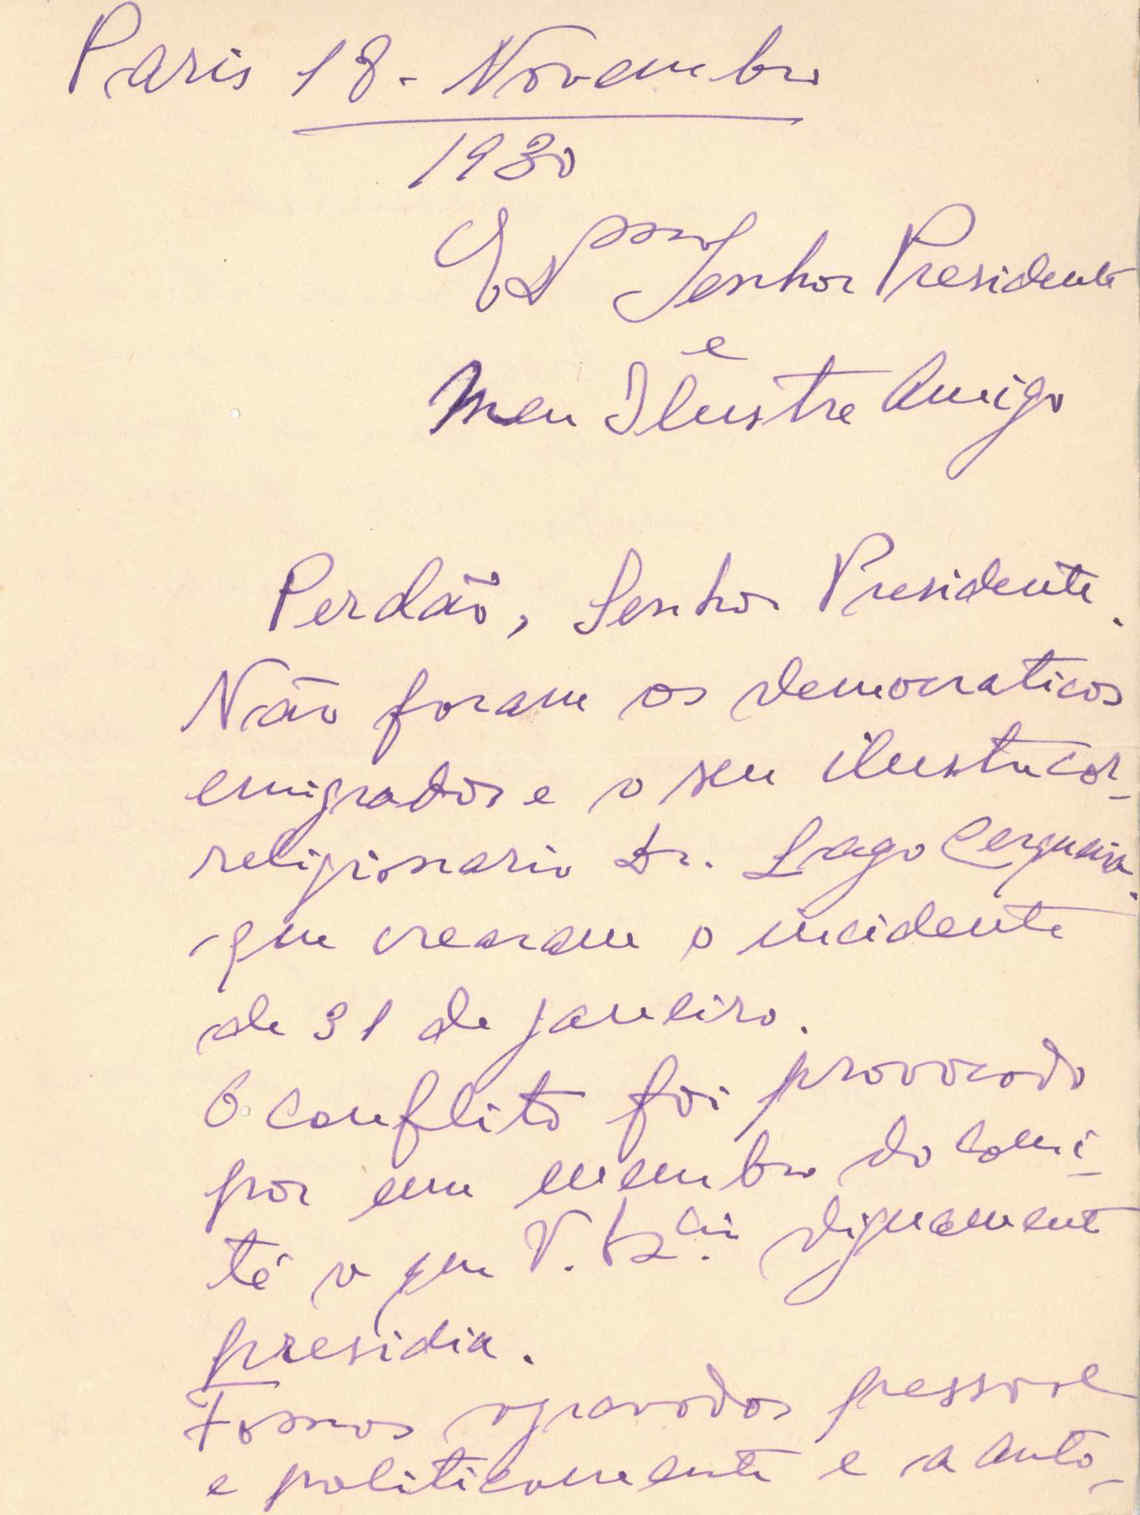 Paris 18 - Novembro
1930
Exmo Senhor Presidente
e
Meu Ilustre Amigo
Perdão, Senhor Presidente.
Não foram os democraticos
emigrados e o seu ilustre cor-
religionario Dr. Lago Cerqueira.
que crearam o incidente
de 31 de janeiro.
O conflito foi provocado
por um membro do comi-
té a que V. Excia. dignamente
presidia.
Fomos agravados pessoal
e politicamente e a auto-